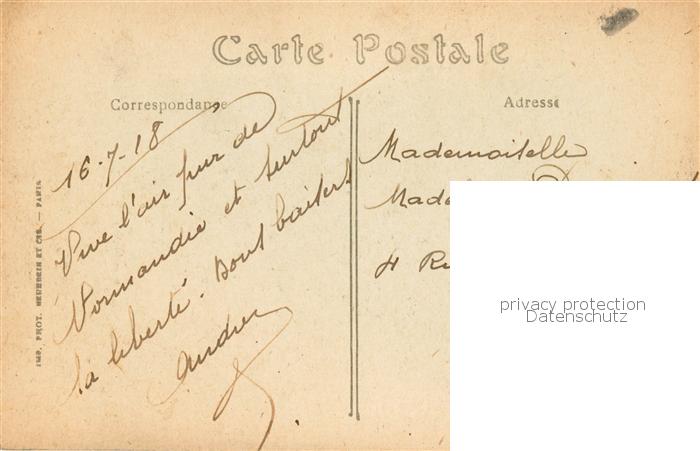 Carte Postale
Correspondance
Adresse
16-7-18
Vive l'air pur de
Normandie et surtout
la liberté. baisers
Andrée
Mademoiselle
Made
4 Ru
IMP. PHOT. NEURDEIN ET CIE. — PARIS
privacy protection
Datenschutz